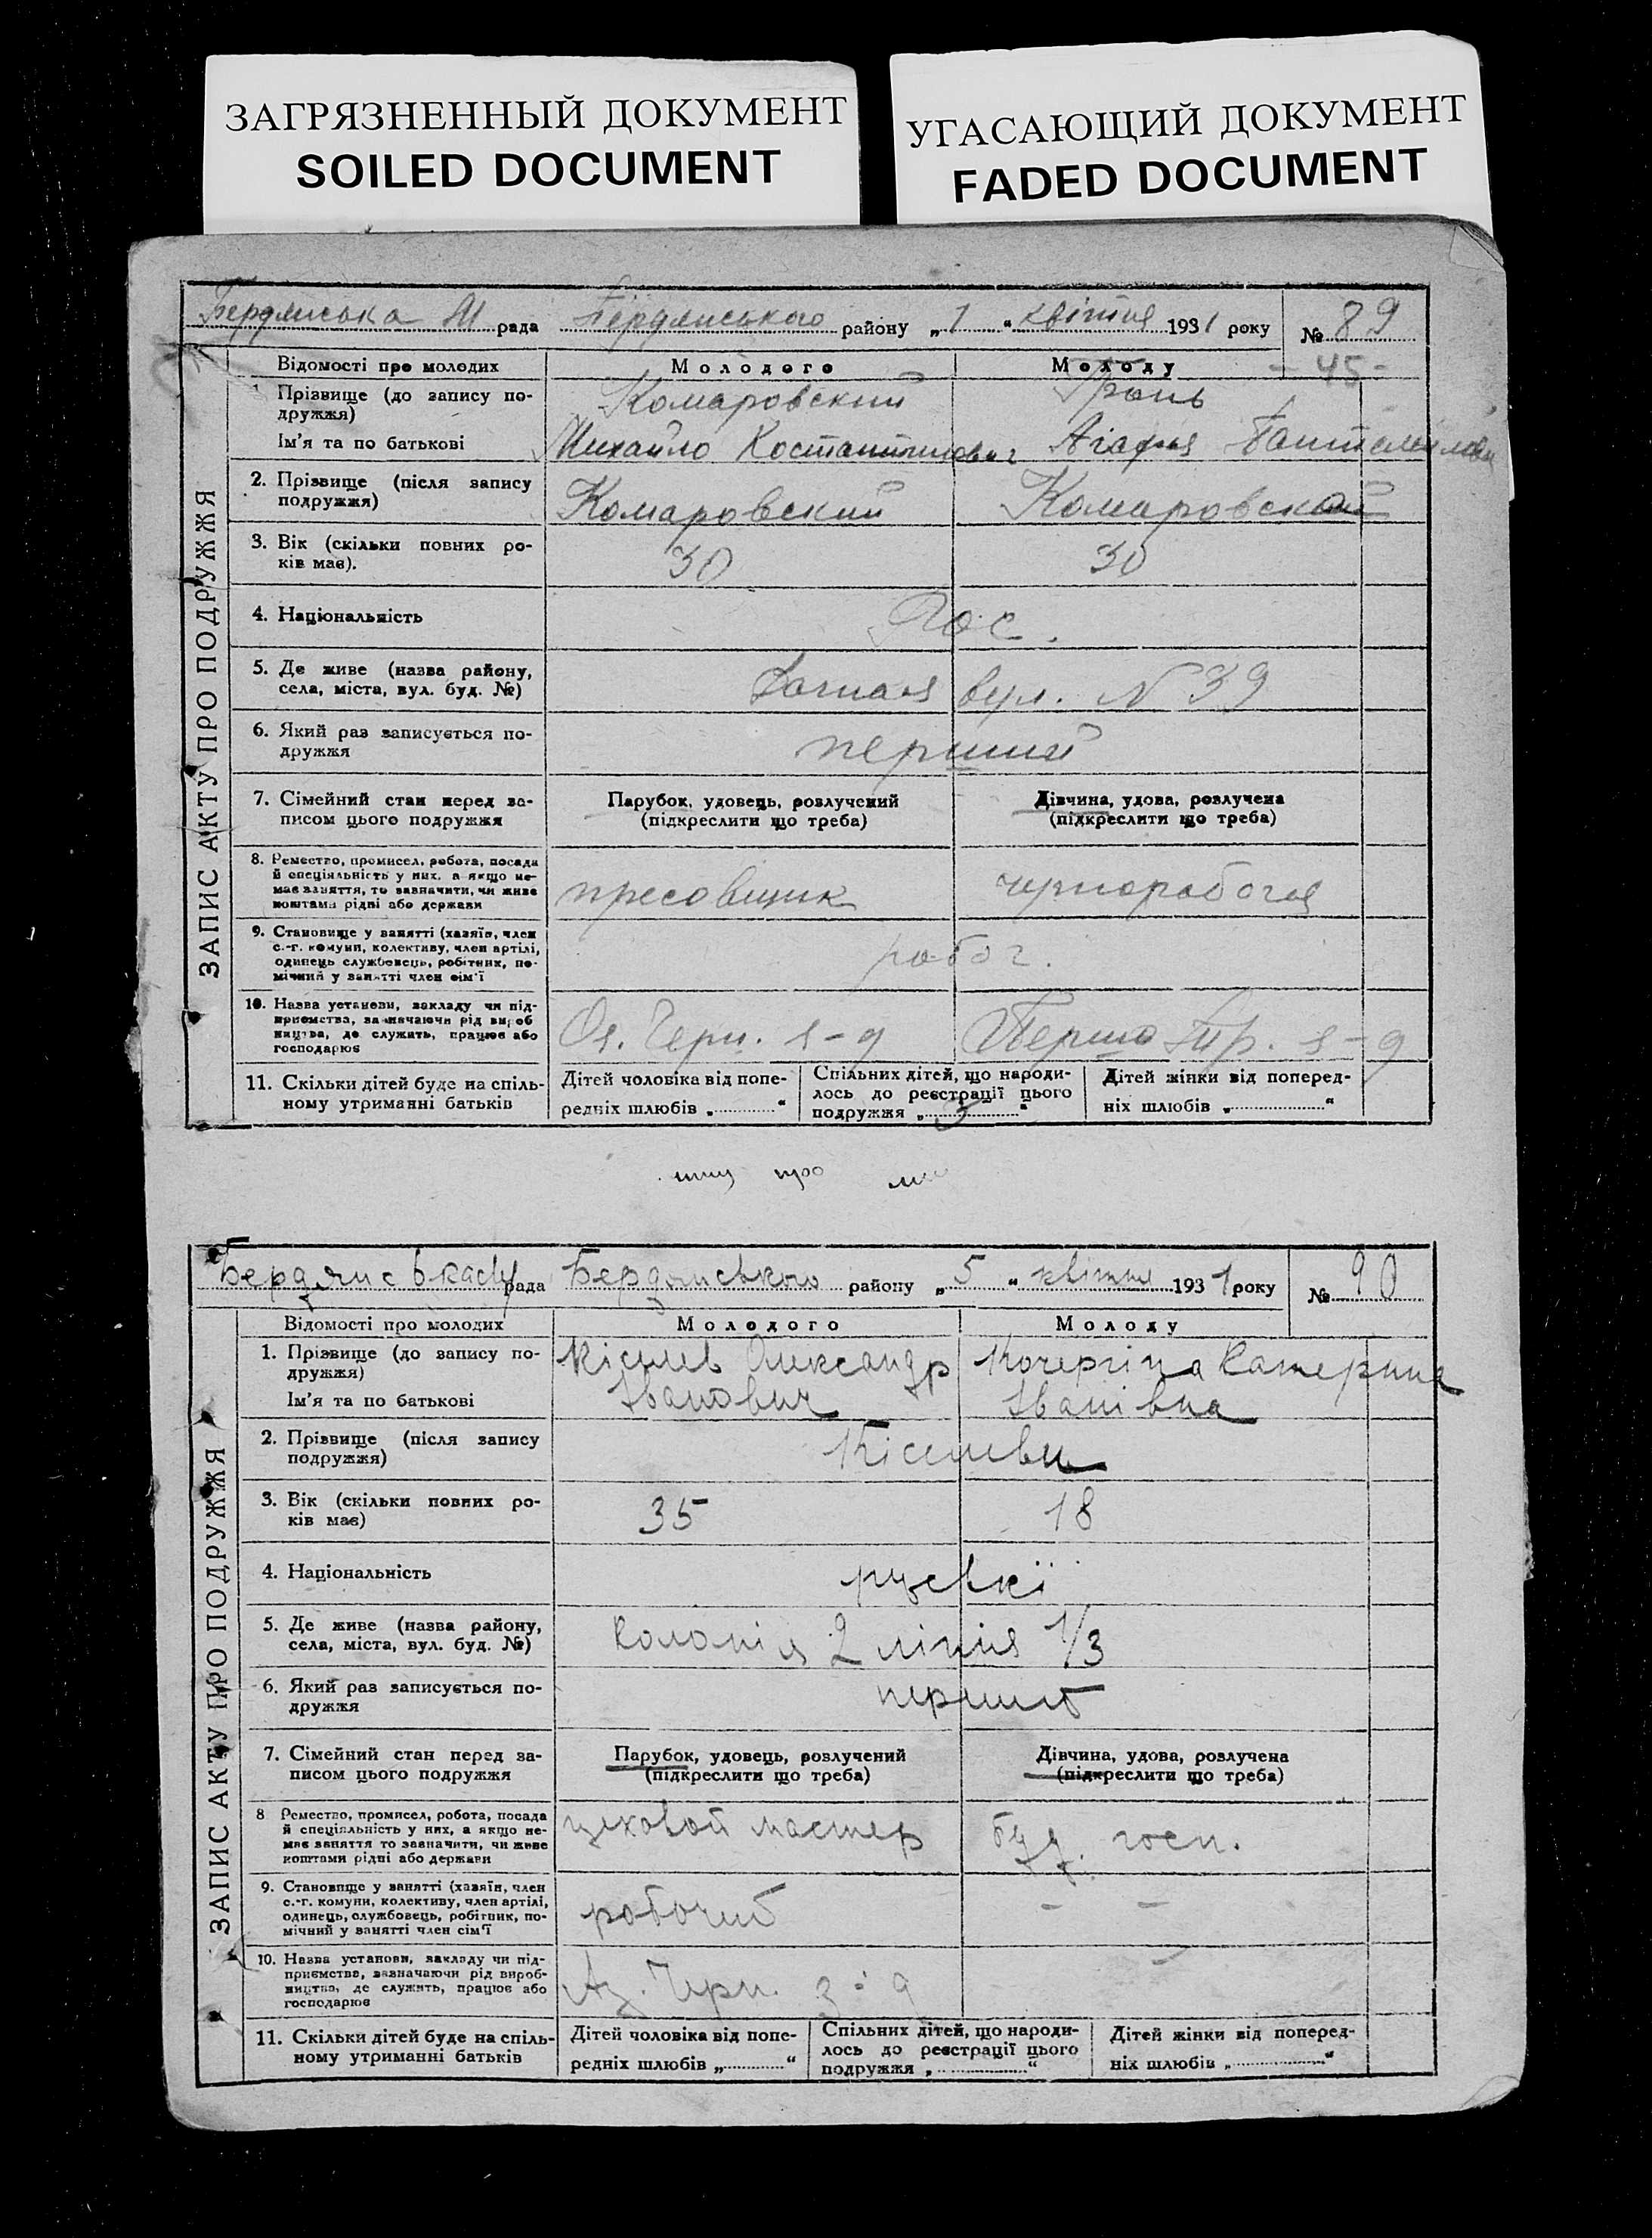 ЗАГРЯЗНЕННЫЙ ДОКУМЕНТ
SOILED DOCUMENT
УГАСАЮЩИЙ ДОКУМЕНТ
FADED DOCUMENT
ЗАПИС АКТУ ПРО ПОДРУЖЖЯ
Бердянська М рада Бердянського району „1“ квітня 1931 року № 89
Відомості про молодих Молодого Молоду - 45 -
1. Прізвище (до запису по- Комаровский
дружжя)
Ім'я та по батькові Михайло Агафія
2. Прізвище (після запису Комаровский Комаровской
подружжя)
3. Вік (скільки повних ро- 30 30
ків має).
4. Національність Рос.
5. Де живе (назва району, Дачная вул. N 39
села, міста, вул. буд. №)
6. Який раз записується по- перший
дружжя
7. Сімейний стан перед за- Парубок, удовець, розлучений Дівчина, удова, розлучена
писом цього подружжя (підкреслити що треба) (підкреслити що треба)
8. Ремество, промисел, робота, посада
й спеціяльність у них, а якщо не-
має заняття, то зазначити, чи живе пресовщик чернорабочая
коштами рідні або держави
9. Становище у занятті (хазяїн, член
с.-г. комуни, колективу, член артілі,
одинець службовець, робітник, по- робоч.
мічний у занятті член сім'ї
10. Назва установи, закладу чи під-
приємства, зазначаючи рід вироб
ництва, де служить, працює або Черн. з-д Перша з-д
господарює
11. Скільки дітей буде на спіль- Дітей чоловіка від попе- Спільних дітей, що народи- Дітей жінки від поперед-
ному утриманні батьків редніх шлюбів „ “ лось до реєстрації цього ніх шлюбів „ “
подружжя „ 3 “
ЗАПИС АКТУ ПРО ПОДРУЖЖЯ
Бердянська рада Бердянського району „5“ квітня 1931 року № 90
Відомості про молодих Молодого Молоду
1. Прізвище (до запису по- Олександр Кочергіна Катерина
дружжя)
Ім'я та по батькові Іванович Іванівна
2. Прізвище (після запису
подружжя)
3. Вік (скільки повних ро- 35 18
ків має)
4. Національність руські
5. Де живе (назва району, Колонія 2 лінія 1/3
села, міста, вул. буд. №)
6. Який раз записується по- перший
дружжя
7. Сімейний стан перед за- Парубок, удовець, розлучений Дівчина, удова, розлучена
писом цього подружжя (підкреслити що треба) (підкреслити що треба)
8 Ремество, промисел, робота, посада
й спеціяльність у них, а якщо не- цеховой мастер госп.
має заняття то зазначити, чи живе
коштами рідні або держави
9. Становище у занятті (хазяїн, член
с.-г. комуни, колективу, член артілі, робочий - -
одинець, службовець, робітник, по-
мічний у занятті член сім'ї
10. Назва установи, закладу чи під-
приємства, зазначаючи рід вироб-
ництва, де служить, працює або Аз. Черн. з-д -
господарює
11. Скільки дітей буде на спіль- Дітей чоловіка від попе- Спільних дітей, що народи- Дітей жінки від поперед-
ному утриманні батьків редніх шлюбів „ “ лось до реєстрації цього ніх шлюбів „ “
подружжя „ “